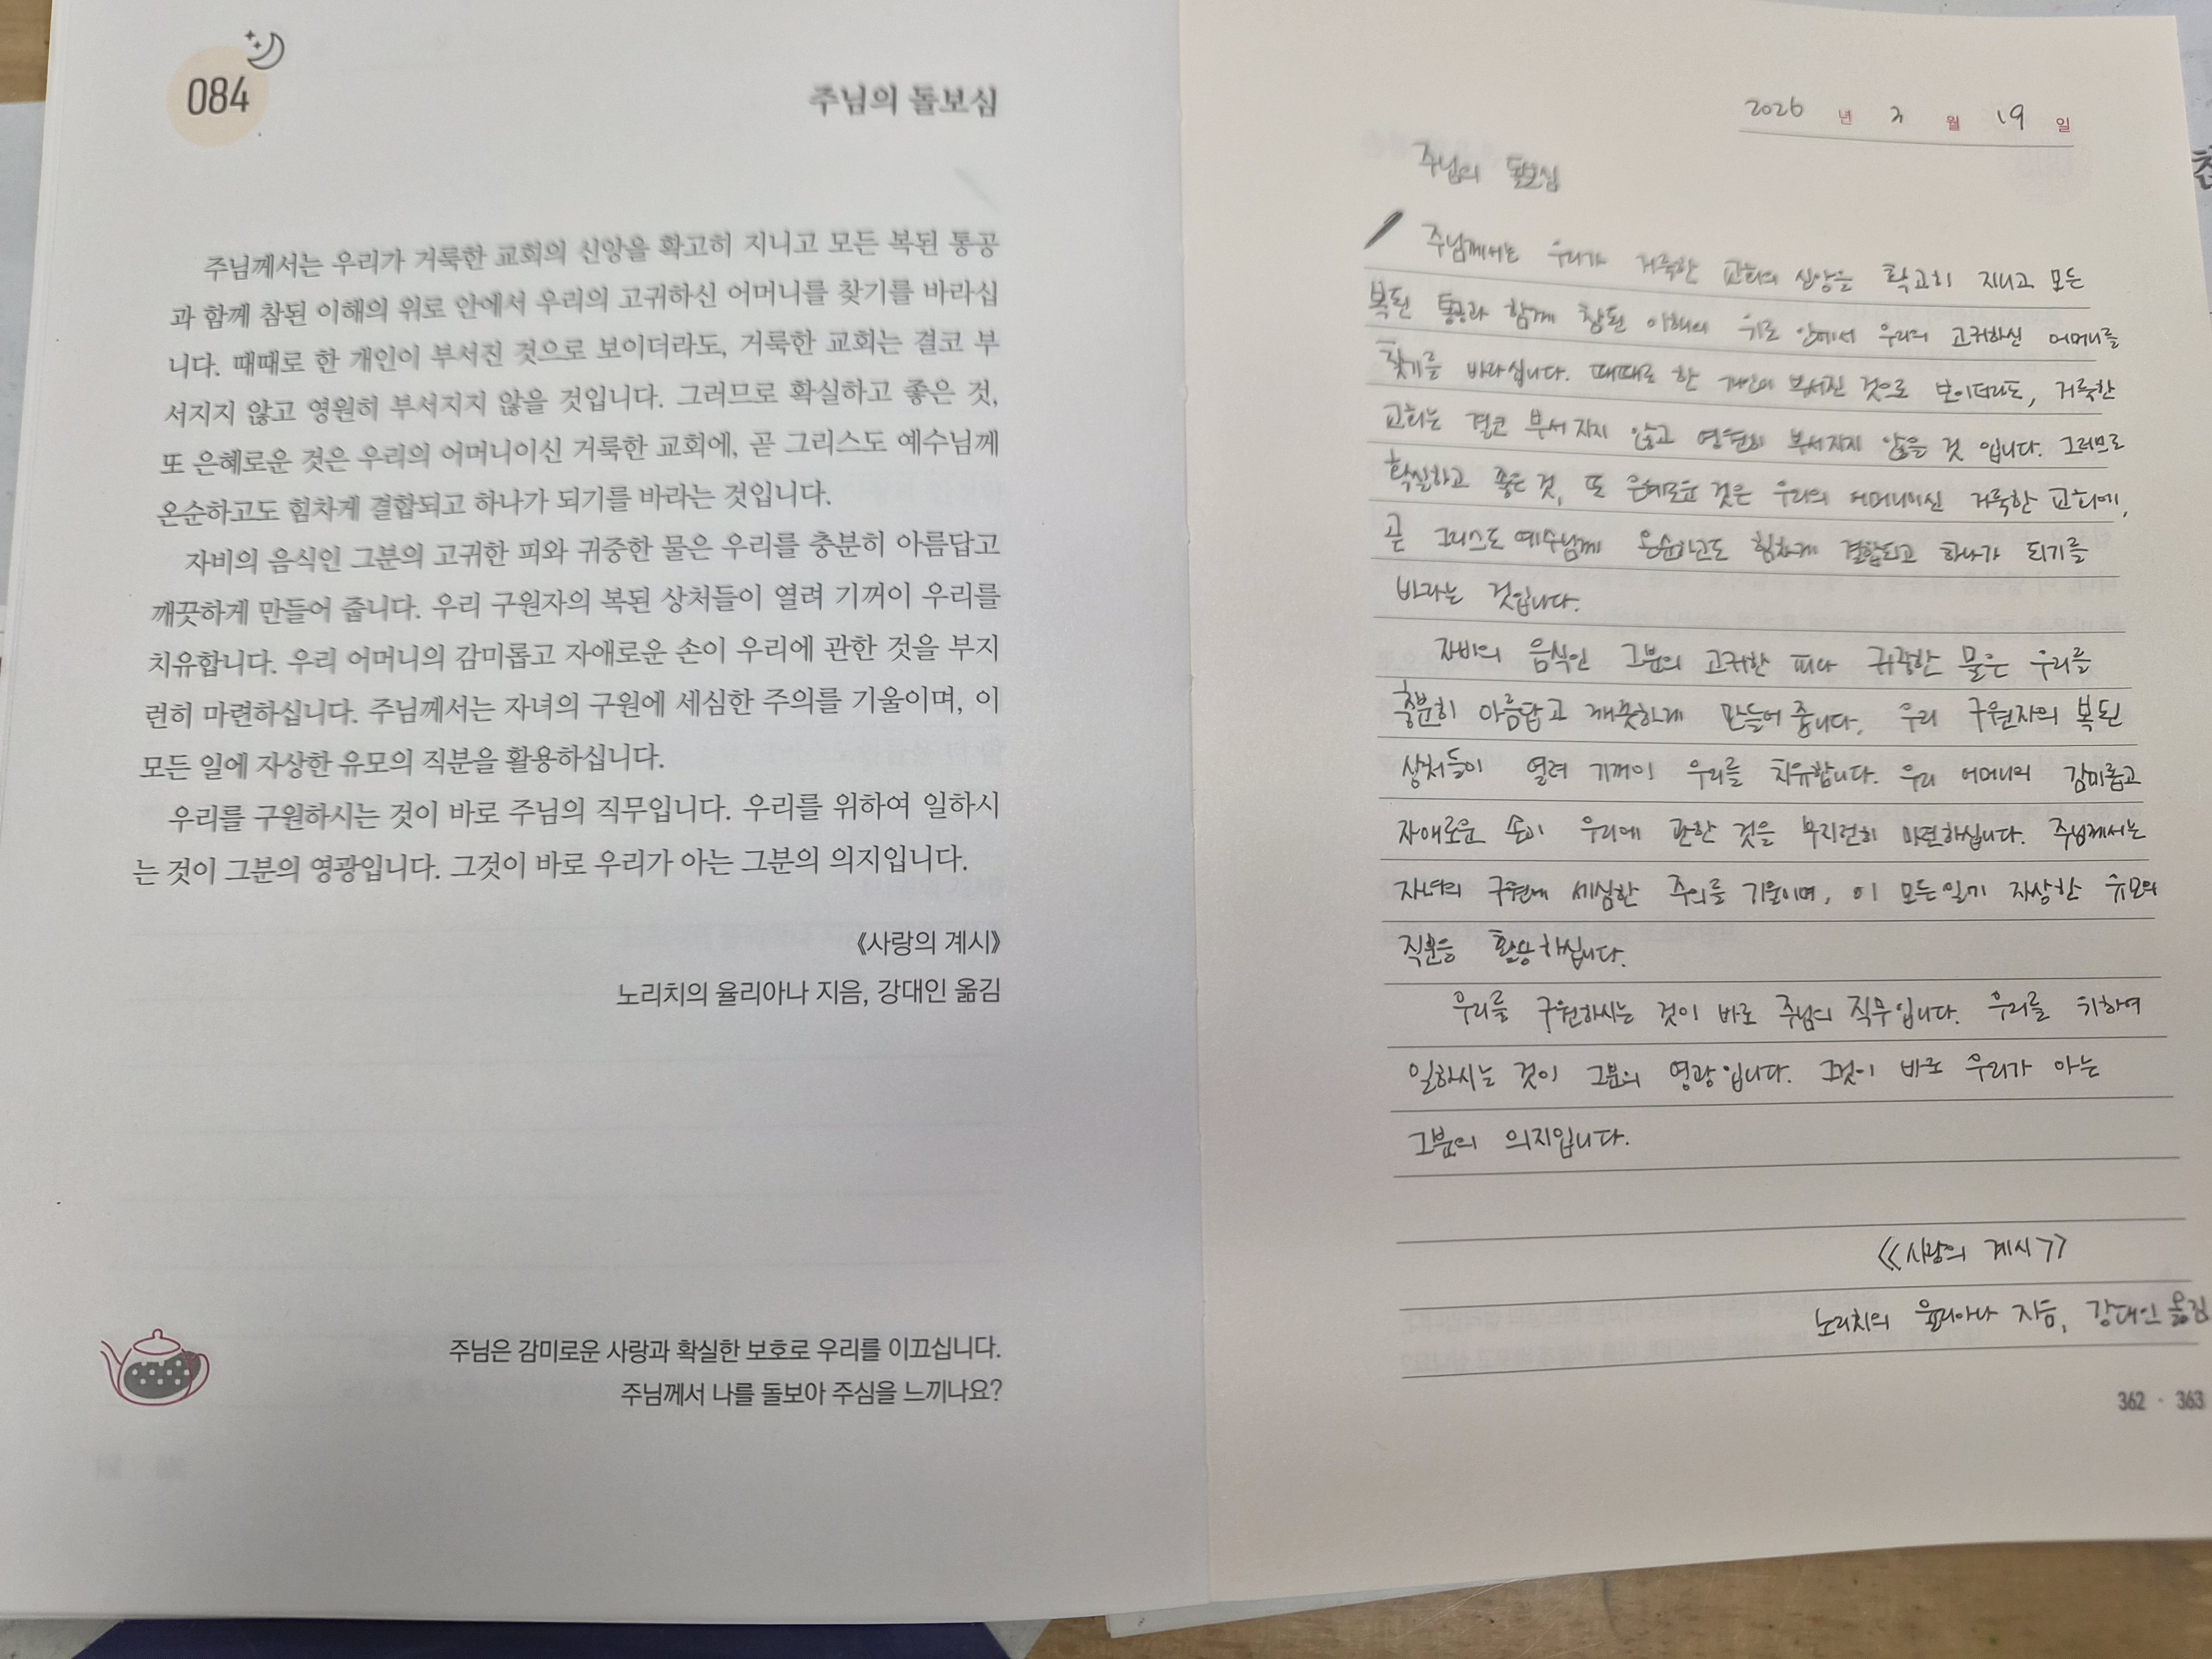 084
주님의 돌보심
주님께서는 우리가 거룩한 교회의 신앙을 확고히 지니고 모든 복된 통공
과 함께 참된 이해의 위로 안에서 우리의 고귀하신 어머니를 찾기를 바라십
니다. 때때로 한 개인이 부서진 것으로 보이더라도, 거룩한 교회는 결코 부
서지지 않고 영원히 부서지지 않을 것입니다. 그러므로 확실하고 좋은 것,
또 은혜로운 것은 우리의 어머니이신 거룩한 교회에, 곧 그리스도 예수님께
온순하고도 힘차게 결합되고 하나가 되기를 바라는 것입니다.
자비의 음식인 그분의 고귀한 피와 귀중한 물은 우리를 충분히 아름답고
깨끗하게 만들어 줍니다. 우리 구원자의 복된 상처들이 열려 기꺼이 우리를
치유합니다. 우리 어머니의 감미롭고 자애로운 손이 우리에 관한 것을 부지
런히 마련하십니다. 주님께서는 자녀의 구원에 세심한 주의를 기울이며, 이
모든 일에 자상한 유모의 직분을 활용하십니다.
우리를 구원하시는 것이 바로 주님의 직무입니다. 우리를 위하여 일하시
는 것이 그분의 영광입니다. 그것이 바로 우리가 아는 그분의 의지입니다.
《사랑의 계시》
노리치의 율리아나 지음, 강대인 옮김
주님은 감미로운 사랑과 확실한 보호로 우리를 이끄십니다.
주님께서 나를 돌보아 주심을 느끼나요?
2026 년 3 월 19 일
주님의 돌보심
주님께서는 우리가 거룩한 교회의 신앙을 확고히 지니고 모든
복된 통공과 함께 참된 이해의 위로 안에서 우리의 고귀하신 어머니를
찾기를 바라십니다. 때때로 한 개인이 부서진 것으로 보이더라도, 거룩한
교회는 결코 부서지지 않고 영원히 부서지지 않을 것 입니다. 그러므로
확실하고 좋은 것, 또 은혜로운 것은 우리의 어머니이신 거룩한 교회에,
곧 그리스도 예수님께 온순하고도 힘차게 결합되고 하나가 되기를
바라는 것입니다.
자비의 음식인 그분의 고귀한 피와 귀중한 물은 우리를
충분히 아름답고 깨끗하게 만들어 줍니다. 우리 구원자의 복된
상처들이 열려 기꺼이 우리를 치유합니다. 우리 어머니의 감미롭고
자애로운 손이 우리에 관한 것을 부지런히 마련하십니다. 주님께서는
자녀의 구원에 세심한 주의를 기울이며, 이 모든 일에 자상한 유모의
직분을 활용하십니다.
우리를 구원하시는 것이 바로 주님의 직무입니다. 우리를 위하여
일하시는 것이 그분의 영광입니다. 그것이 바로 우리가 아는
그분의 의지입니다.
《사랑의 계시》
노리치의 율리아나 지음, 강대인 옮김
362 · 363